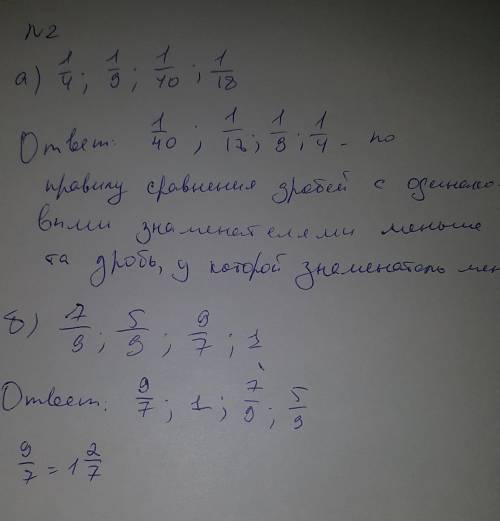 №2
а) 1/4 ; 1/9 ; 1/40 ; 1/18
Ответ: 1/40 ; 1/18 ; 1/9 ; 1/4 - по
правилу сравнения дробей с одинако-
выми знаменателями меньше
та дробь, у которой знаменатель мен
б) 7/9 ; 5/9 ; 9/7 ; 1
Ответ: 9/7 ; 1 ; 7/9 ; 5/9
9/7 = 1 2/7